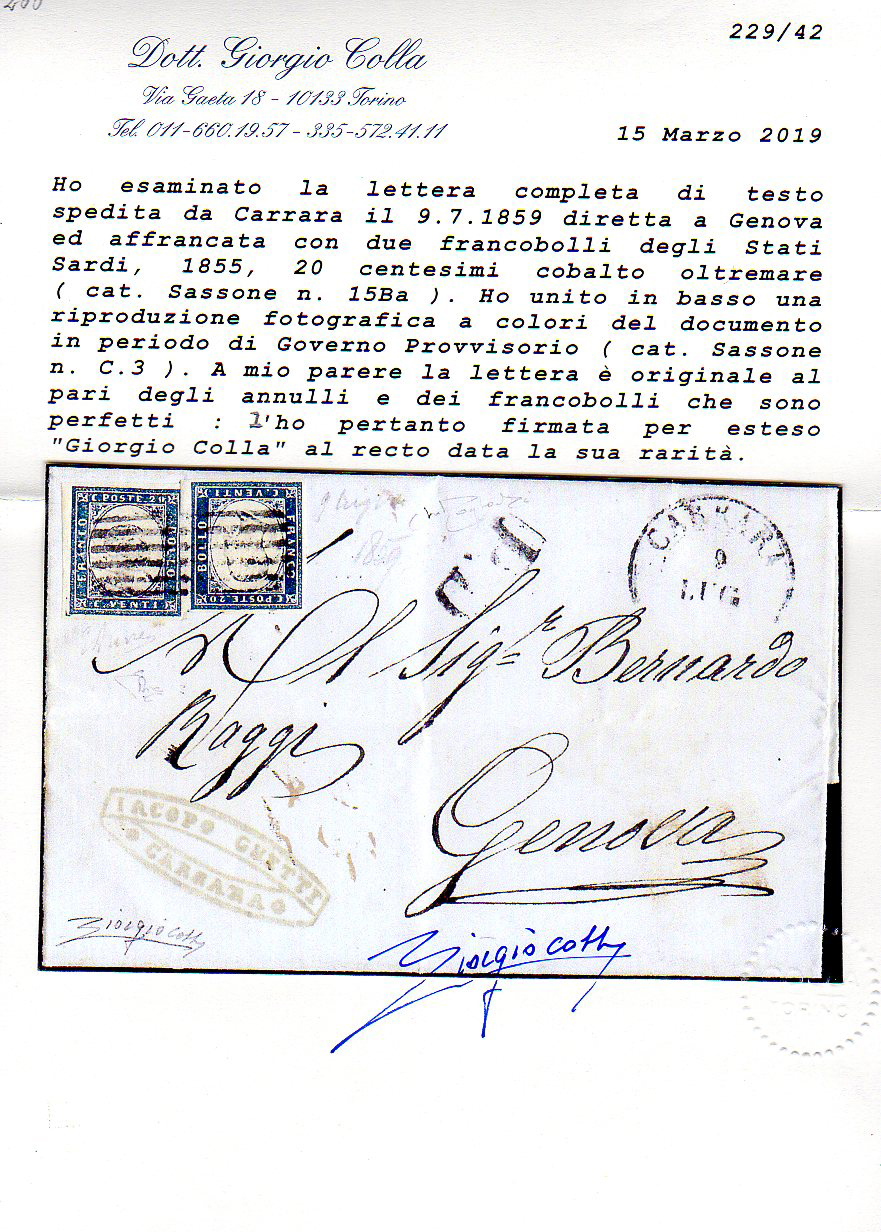 229/42
Dott. Giorgio Colla
Via Gaeta 18 - 10133 Torino
Tel. 011-660.19.57 - 335-572.41.11
15 Marzo 2019
Ho esaminato la lettera completa di testo
spedita da Carrara il 9.7.1859 diretta a Genova
ed affrancata con due francobolli degli Stati
Sardi, 1855, 20 centesimi cobalto oltremare
( cat. Sassone n. 15Ba ). Ho unito in basso una
riproduzione fotografica a colori del documento
in periodo di Governo Provvisorio ( cat. Sassone
n. C.3 ). A mio parere la lettera è originale al
pari degli annulli e dei francobolli che sono
perfetti : l'ho pertanto firmata per esteso
"Giorgio Colla" al recto data la sua rarità.
C. POSTE. 20
FRANCO
BOLLO
C. VENTI
C. VENTI
BOLLO
FRANCO
C. POSTE 20
P.D.
CARRARA
9
LUG
1859
Al Sigr Bernardo
Raggi
Genova
IACOPO
CARRARA
Giorgio Colla
Giorgio Colla
TORINO